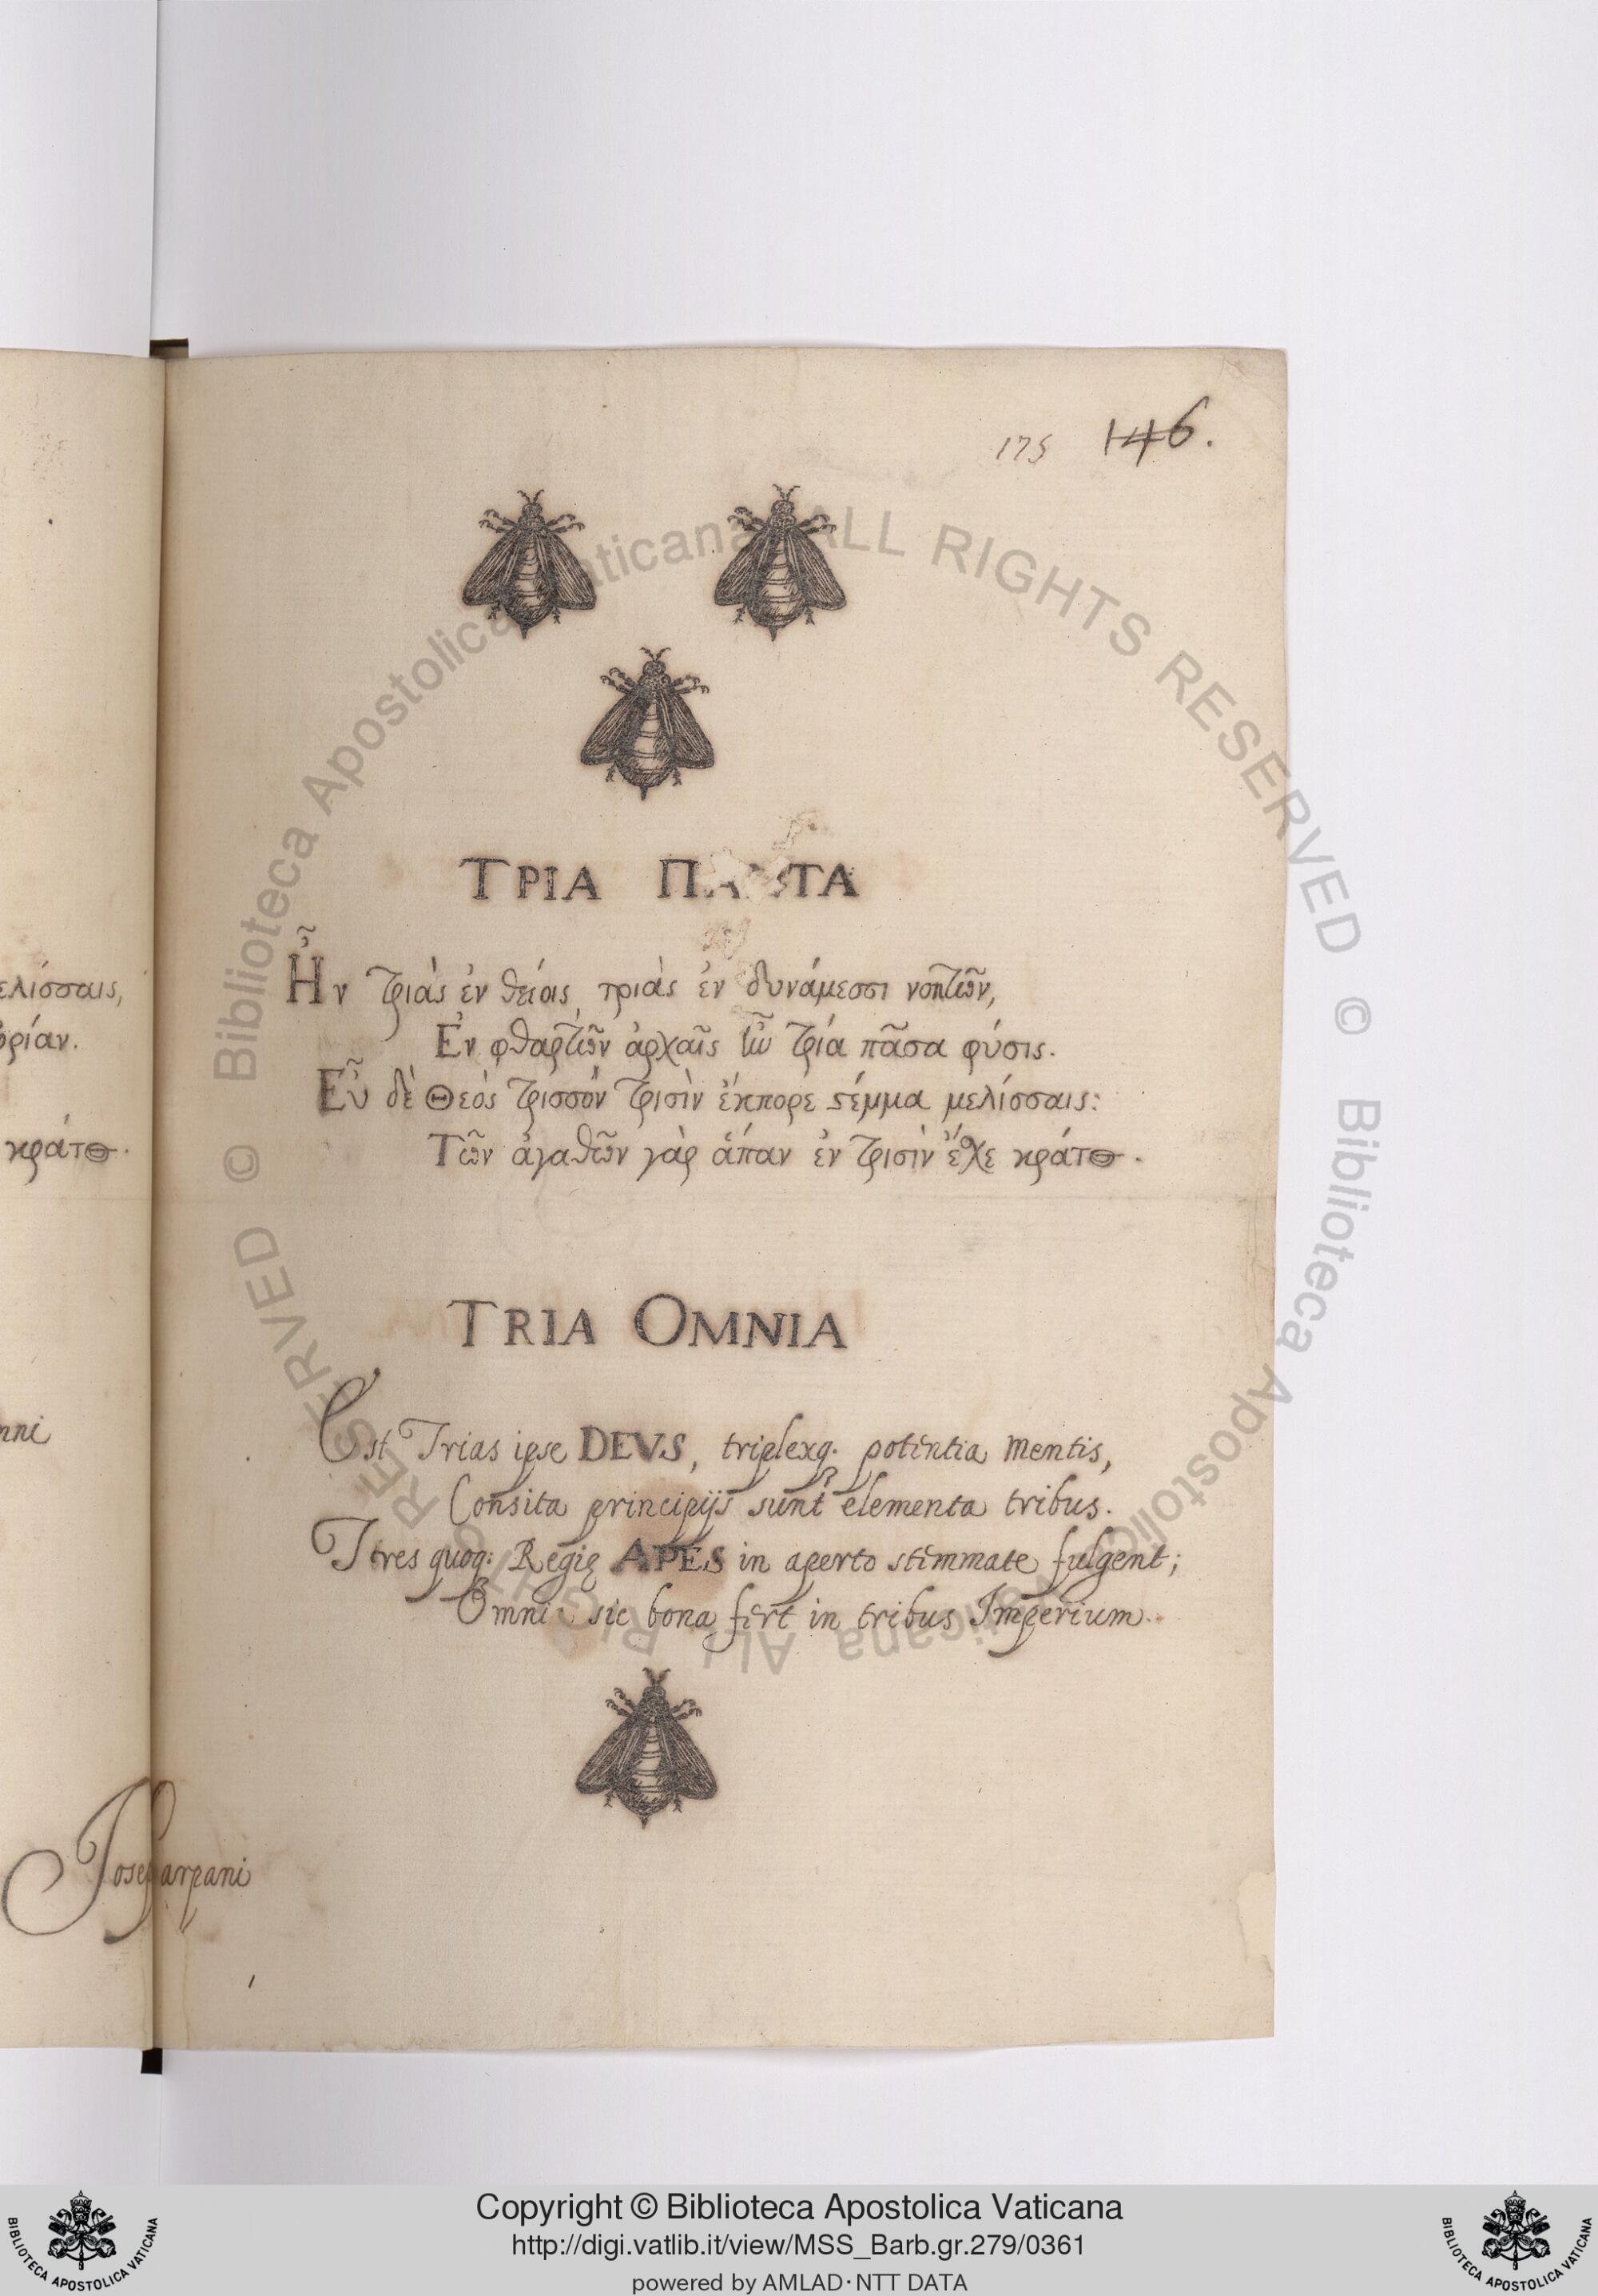 175 146.
ΤΡΙΑ ΠΑΝΤΑ
Ἦν τριὰς ἐν θείοις τριὰς ἐν δυνάμεσσι νοητῶν,
Ἐν φθαρτῶν ἀρχαῖς ἦν τρία πᾶσα φύσις.
Εὖ δὲ Θεὸς τρισσὸν τρισὶν ἔκπορε στέμμα μελίσσαις:
Τῶν ἀγαθῶν γὰρ ἅπαν ἐν τρισὶν ἔχε κράτος.
TRIA OMNIA
Est Trias ipse DEVS, triplexq. potentia mentis,
Consita principijs sunt elementa tribus.
Tres quoq: Regię APES in aperto stemmate fulgent;
Omnia sic bona fert in tribus Imperium.
ελίσσαις,
ορίαν.
κράτος.
mni
Jos Carpani
Copyright © Biblioteca Apostolica Vaticana
http://digi.vatlib.it/view/MSS_Barb.gr.279/0361
powered by AMLAD·NTT DATA
BIBLIOTECA APOSTOLICA VATICANA
BIBLIOTECA APOSTOLICA VATICANA
© Biblioteca Apostolica Vaticana ALL RIGHTS RESERVED © Biblioteca Apostolica Vaticana ALL RIGHTS RESERVED